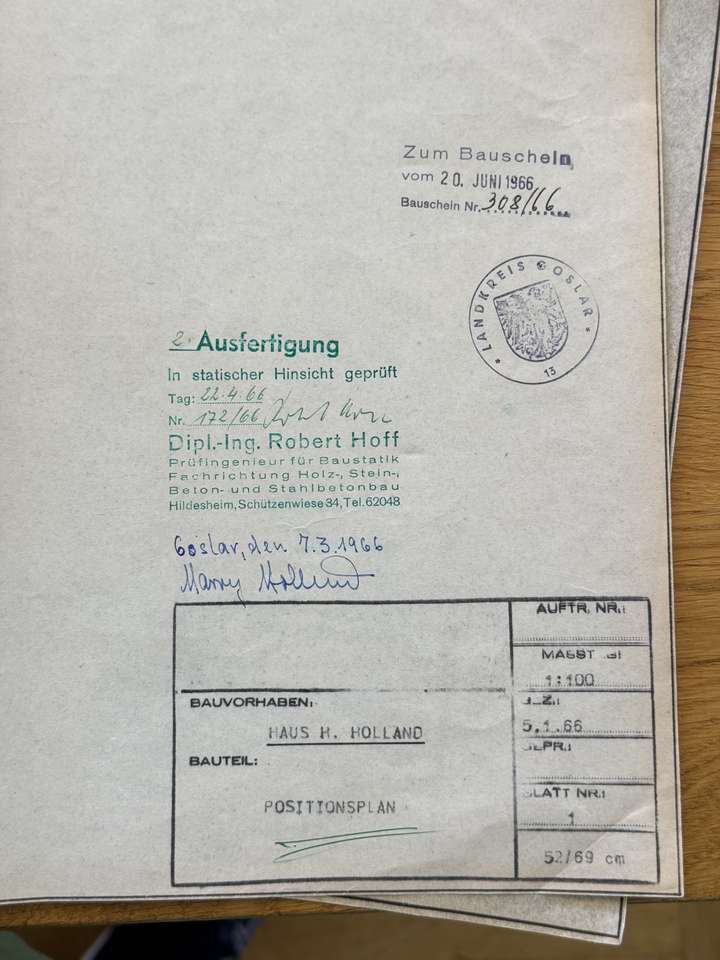 Zum Bauschein
vom 20. JUNI 1966
Bauschein Nr. 308/66
LANDKREIS GOSLAR
13
2. Ausfertigung
In statischer Hinsicht geprüft
Tag: 22.4.66
Nr. 172/66
Dipl.-Ing. Robert Hoff
Prüfingenieur für Baustatik
Fachrichtung Holz-, Stein-,
Beton- und Stahlbetonbau
Hildesheim, Schützenwiese 34, Tel. 62048
Goslar, den 7.3.1966
Harry Holland
AUFTR. NR.:
MASST
1:100
BAUVORHABEN:
HAUS H. HOLLAND
5.1.66
BAUTEIL:
POSITIONSPLAN
LATT NR.:
1
52/69 cm